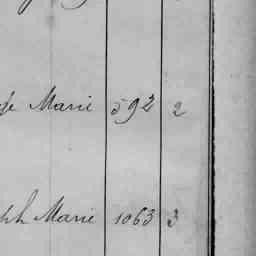 Marie 592 2
Marie 1063 3